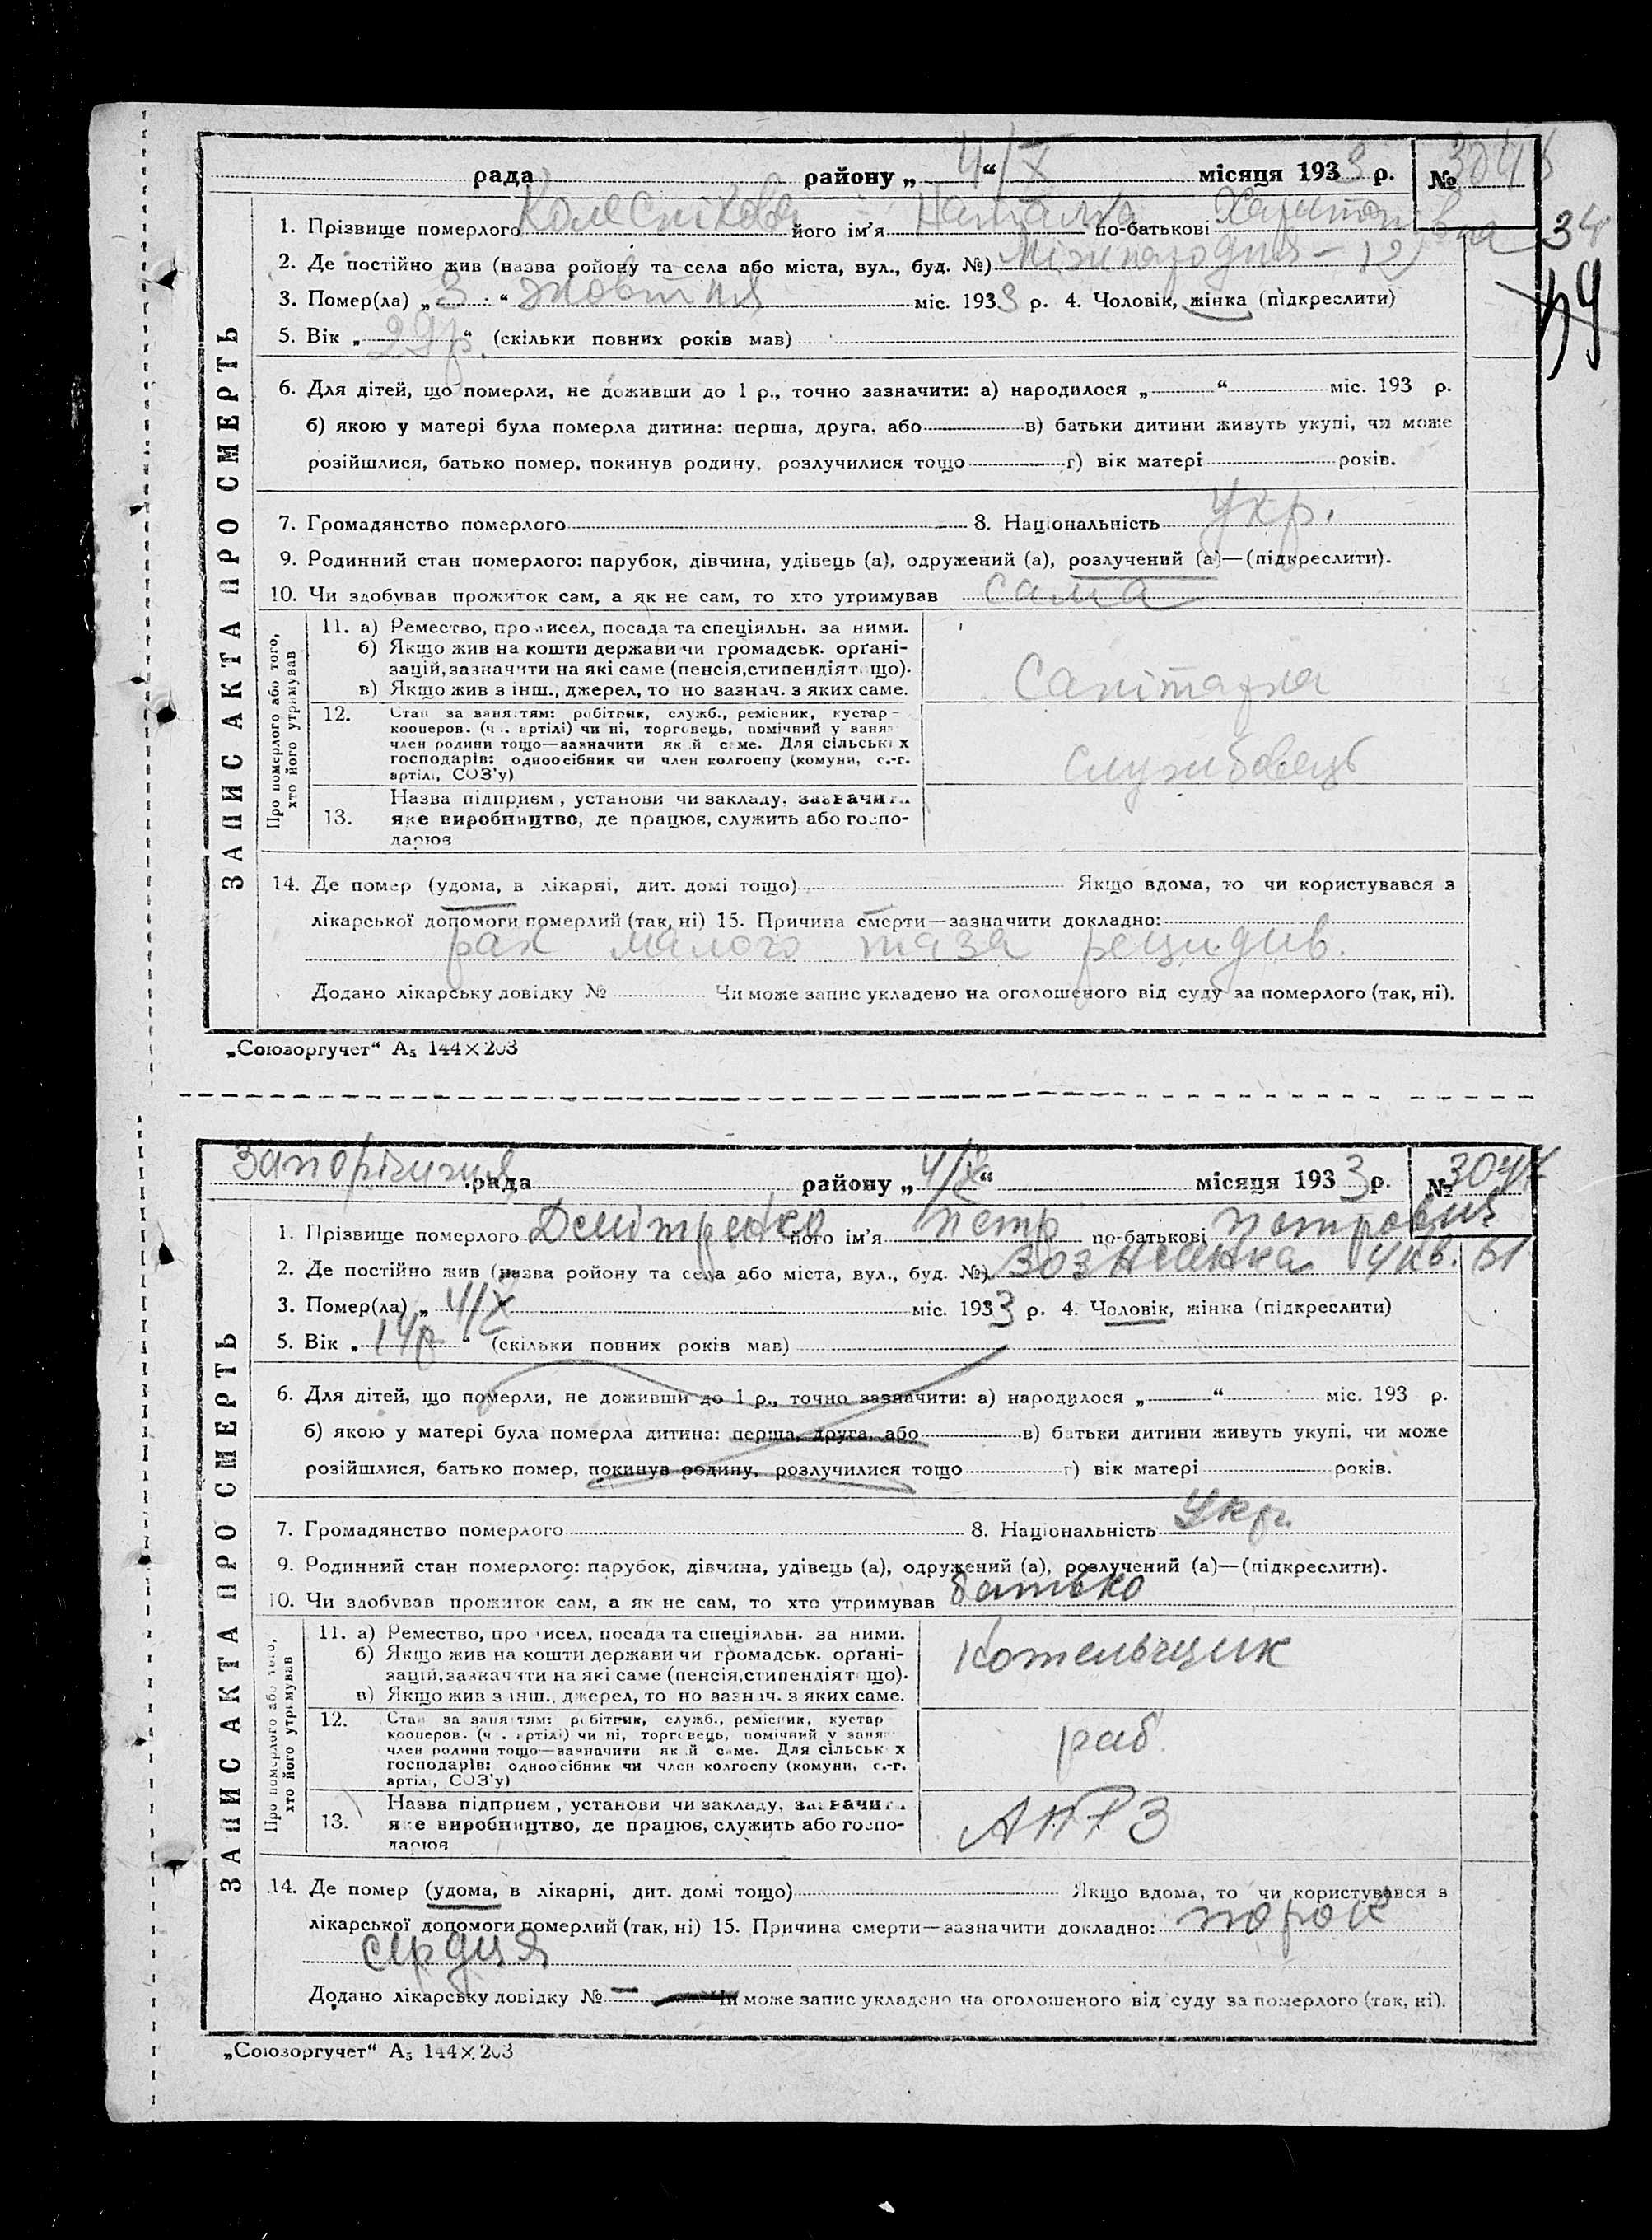 рада району „ 4/X “ місяця 1933 р. №
34
1. Прізвище померлого Колеснікова його ім'я Наталка по-батькові Харитонівна
2. Де постійно жив (назва ройону та села або міста, вул., буд. №) Міжнародня - 12
3. Помер(ла) „ 3 “ жовтня міс. 1933 р. 4. Чоловік, жінка (підкреслити)
5. Вік „ 29р. “ (скільки повних років мав)
6. Для дітей, що померли, не доживши до 1 р., точно зазначити: а) народилося „ “ міс. 193 р.
б) якою у матері була померла дитина: перша, друга, або в) батьки дитини живуть укупі, чи може
розійшлися, батько помер, покинув родину, розлучилися тощо г) вік матері років.
7. Громадянство померлого 8. Національність Укр.
9. Родинний стан померлого: парубок, дівчина, удівець (а), одружений (а), розлучений (а)—(підкреслити).
10. Чи здобував прожиток сам, а як не сам, то хто утримував сама
ЗАПИС АКТА ПРО СМЕРТЬ
Про померлого або того, хто його утримував
11. а) Ремество, промисел, посада та спеціяльн. за ними.
б) Якщо жив на кошти держави чи громадськ. орґані-
зацій, зазначити на які саме (пенсія, стипендія тощо).
в) Якщо жив з інш., джерел, то но зазнач. з яких саме.
Санітарка
12. Стан за заняттям: робітник, служб., ремісник, кустар-
кооперов. (ч. артілі) чи ні, торговець, помічний у занят
член родини тощо—зазначити який саме. Для сільських
господарів: одноосібник чи член колгоспу (комуни, с.-г.
артілі, СОЗ'у)
службовець
13. Назва підприєм, установи чи закладу, зазначити
яке виробництво, де працює, служить або госпо-
дарює
14. Де помер (удома, в лікарні, дит. домі тощо) Якщо вдома, то чи користувався з
лікарської допомоги померлий (так, ні) 15. Причина смерти—зазначити докладно:
рак малого таза рецидив.
Додано лікарську довідку № Чи може запис укладено на оголошеного від суду за померлого (так, ні).
„Союзоргучет“ А5 144×203
Запоріжжя рада району „ 4/X “ місяця 1933 р. № 3047
1. Прізвище померлого Демітренко його ім'я Петр по-батькові Петрович
2. Де постійно жив (назва ройону та села або міста, вул., буд. №) Вознесенка 4 кв. 51
3. Помер(ла) „ 4/X міс. 1933 р. 4. Чоловік, жінка (підкреслити)
5. Вік „ 14р “ (скільки повних років мав)
6. Для дітей, що померли, не доживши до 1 р., точно зазначити: а) народилося „ “ міс. 193 р.
б) якою у матері була померла дитина: перша, друга, або в) батьки дитини живуть укупі, чи може
розійшлися, батько помер, покинув родину, розлучилися тощо г) вік матері років.
7. Громадянство померлого 8. Національність Укр.
9. Родинний стан померлого: парубок, дівчина, удівець (а), одружений (а), розлучений (а)—(підкреслити).
10. Чи здобував прожиток сам, а як не сам, то хто утримував батько
ЗАПИС АКТА ПРО СМЕРТЬ
Про померлого або того, хто його утримував
11. а) Ремество, промисел, посада та спеціяльн. за ними.
б) Якщо жив на кошти держави чи громадськ. орґані-
зацій, зазначити на які саме (пенсія, стипендія тощо).
в) Якщо жив з інш., джерел, то но зазнач. з яких саме.
Котельщик
12. Стан за заняттям: робітник, служб., ремісник, кустар
кооперов. (ч. артілі) чи ні, торговець, помічний у занят
член родини тощо—зазначити який саме. Для сільських
господарів: одноосібник чи член колгоспу (комуни, с.-г.
артілі, СОЗ'у)
раб.
13. Назва підприєм, установи чи закладу, зазначити
яке виробництво, де працює, служить або госпо-
дарює
14. Де помер (удома, в лікарні, дит. домі тощо) Якщо вдома, то чи користувався з
лікарської допомоги померлий (так, ні) 15. Причина смерти—зазначити докладно: порок
сердця
Додано лікарську довідку № — Чи може запис укладено на оголошеного від суду за померлого (так, ні).
„Союзоргучет“ А5 144×203